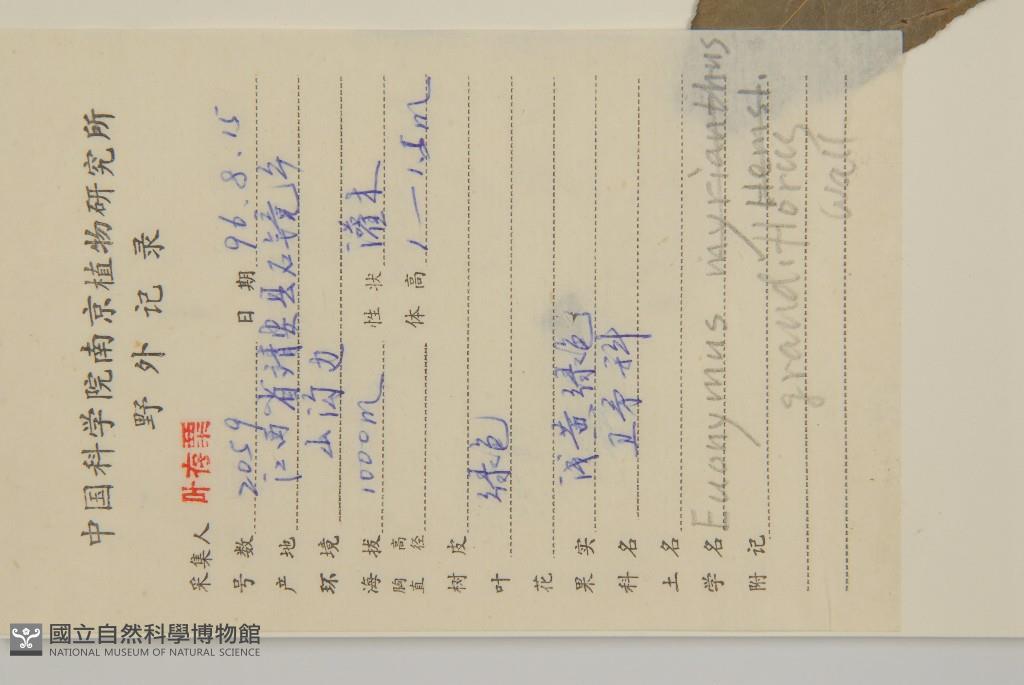 中国科学院南京植物研究所
野外记录
采集人 叶存粟
号数 2059 日期 96.8.15
产地 江西省靖安县石镜乡
环境 山沟边
海拔 1000m 性状 灌木
胸高直径 体高 1—1.5m
树皮
叶 绿色
花
果实 浅黄绿色
科名 卫矛科
土名
学名 Euonymus myrianthus
附记 Hemsl.
grandiflorus
wall
國立自然科學博物館
NATIONAL MUSEUM OF NATURAL SCIENCE